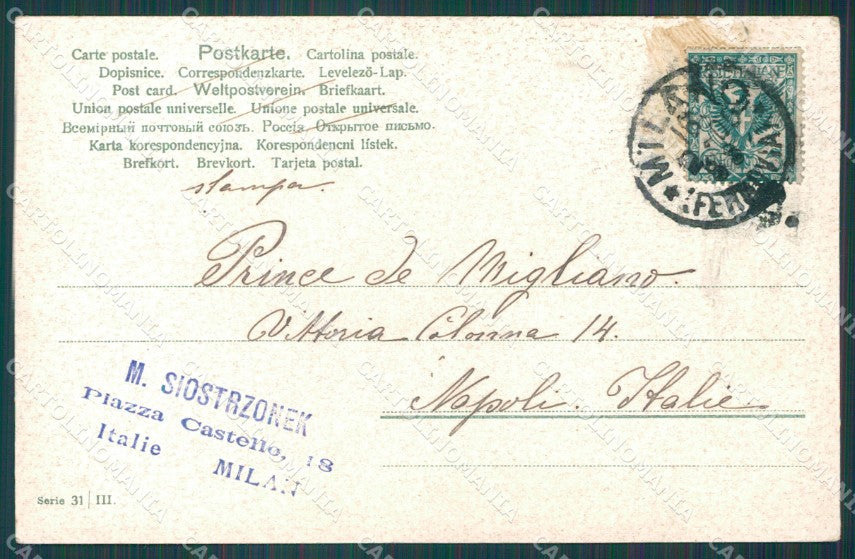 Carte postale. Postkarte. Cartolina postale.
Dopisnice. Correspondenzkarte. Levelező-Lap.
Post card. Weltpostverein. Briefkaart.
Union postale universelle. Unione postale universale.
Всемірный почтовый союзъ. Россія. Открытое письмо.
Karta korespondencyjna. Korespondenční lístek.
Brefkort. Brevkort. Tarjeta postal.
stampa.
MILANO
(FERROVIA)
Prince de Migliano.
Vittoria Colonna 14.
Napoli. Italie
M. SIOSTRZONEK
Piazza Castello, 18
Italie MILAN
Serie 31/III.
CARTOLINOMANIA